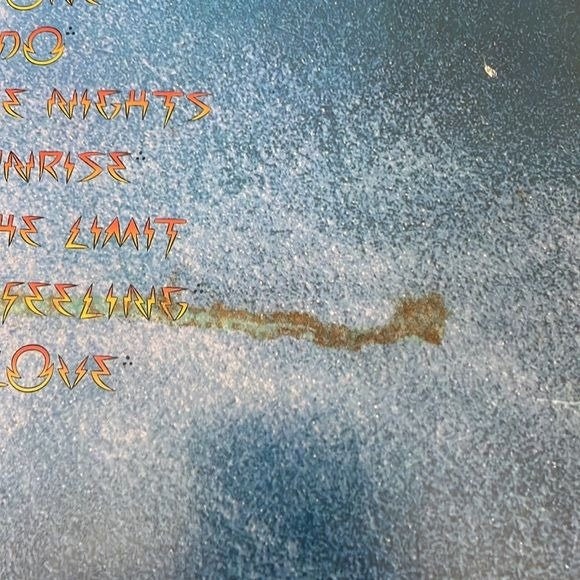 DO
E NIGHTS
NRISE
HE LIMIT
FEELING
LOVE